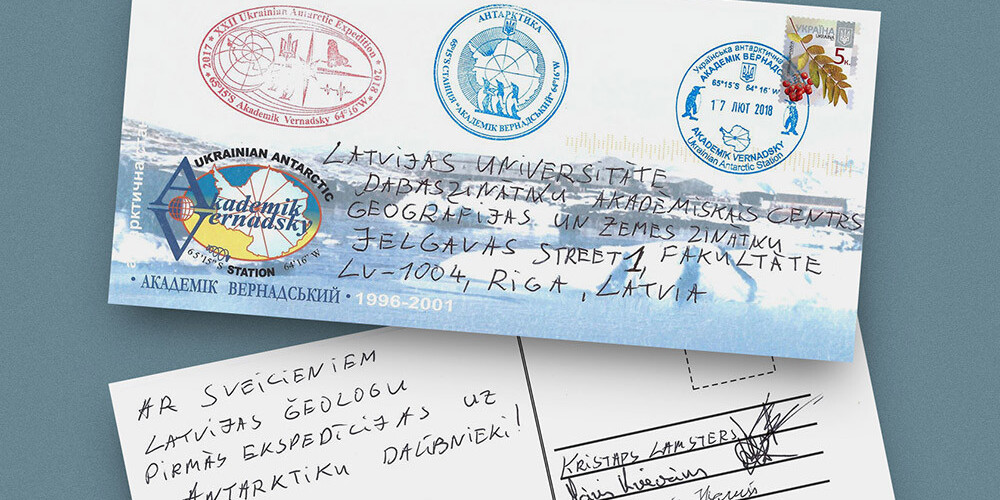 2017 · XXII Ukrainian Antarctic Expedition · 2018
65°15'S Akademik Vernadsky 64°16'W
АНТАРКТИКА
65°15'S СТАНЦІЯ "АКАДЕМІК ВЕРНАДСЬКИЙ" 64°16'W
Українська антарктична
АКАДЕМІК ВЕРНАДС
65°15'S 64°16'W
17 ЛЮТ 2018
AKADEMIK VERNADSKY
Ukrainian Antarctic Station
УКРАЇНА
5к.
рктична
UKRAINIAN ANTARCTIC
Akademik
Vernadsky
65°15'S STATION 64°16'W
· АКАДЕМІК ВЕРНАДСЬКИЙ · 1996-2001
LATVIJAS UNIVERSITĀTE
DABASZINĀTŅU AKADĒMISKAIS CENTRS
ĢEOGRĀFIJAS UN ZEMES ZINĀTŅU
JELGAVAS STREET 1, FAKULTĀTE
LV-1004, RĪGA, LATVIA
AR SVEICIENIEM
LATVIJAS ĢEOLOGU
PIRMĀS EKSPEDĪCIJAS UZ
ANTARKTIKU DALĪBNIEKI!
KRISTAPS LAMSTERS